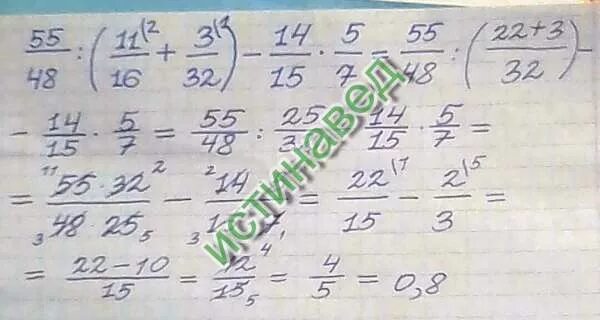 55/48 : (11\2/16 + 3\1/32) − 14/15 · 5/7 = 55/48 : (22+3/32) −
− 14/15 · 5/7 = 55/48 : 25/32 14/15 · 5/7 =
= 55·32/48·25 − 14/15·7 = 22\1/15 − 2\5/3 =
= 22−10/15 = 12/15 = 4/5 = 0,8
истинавед